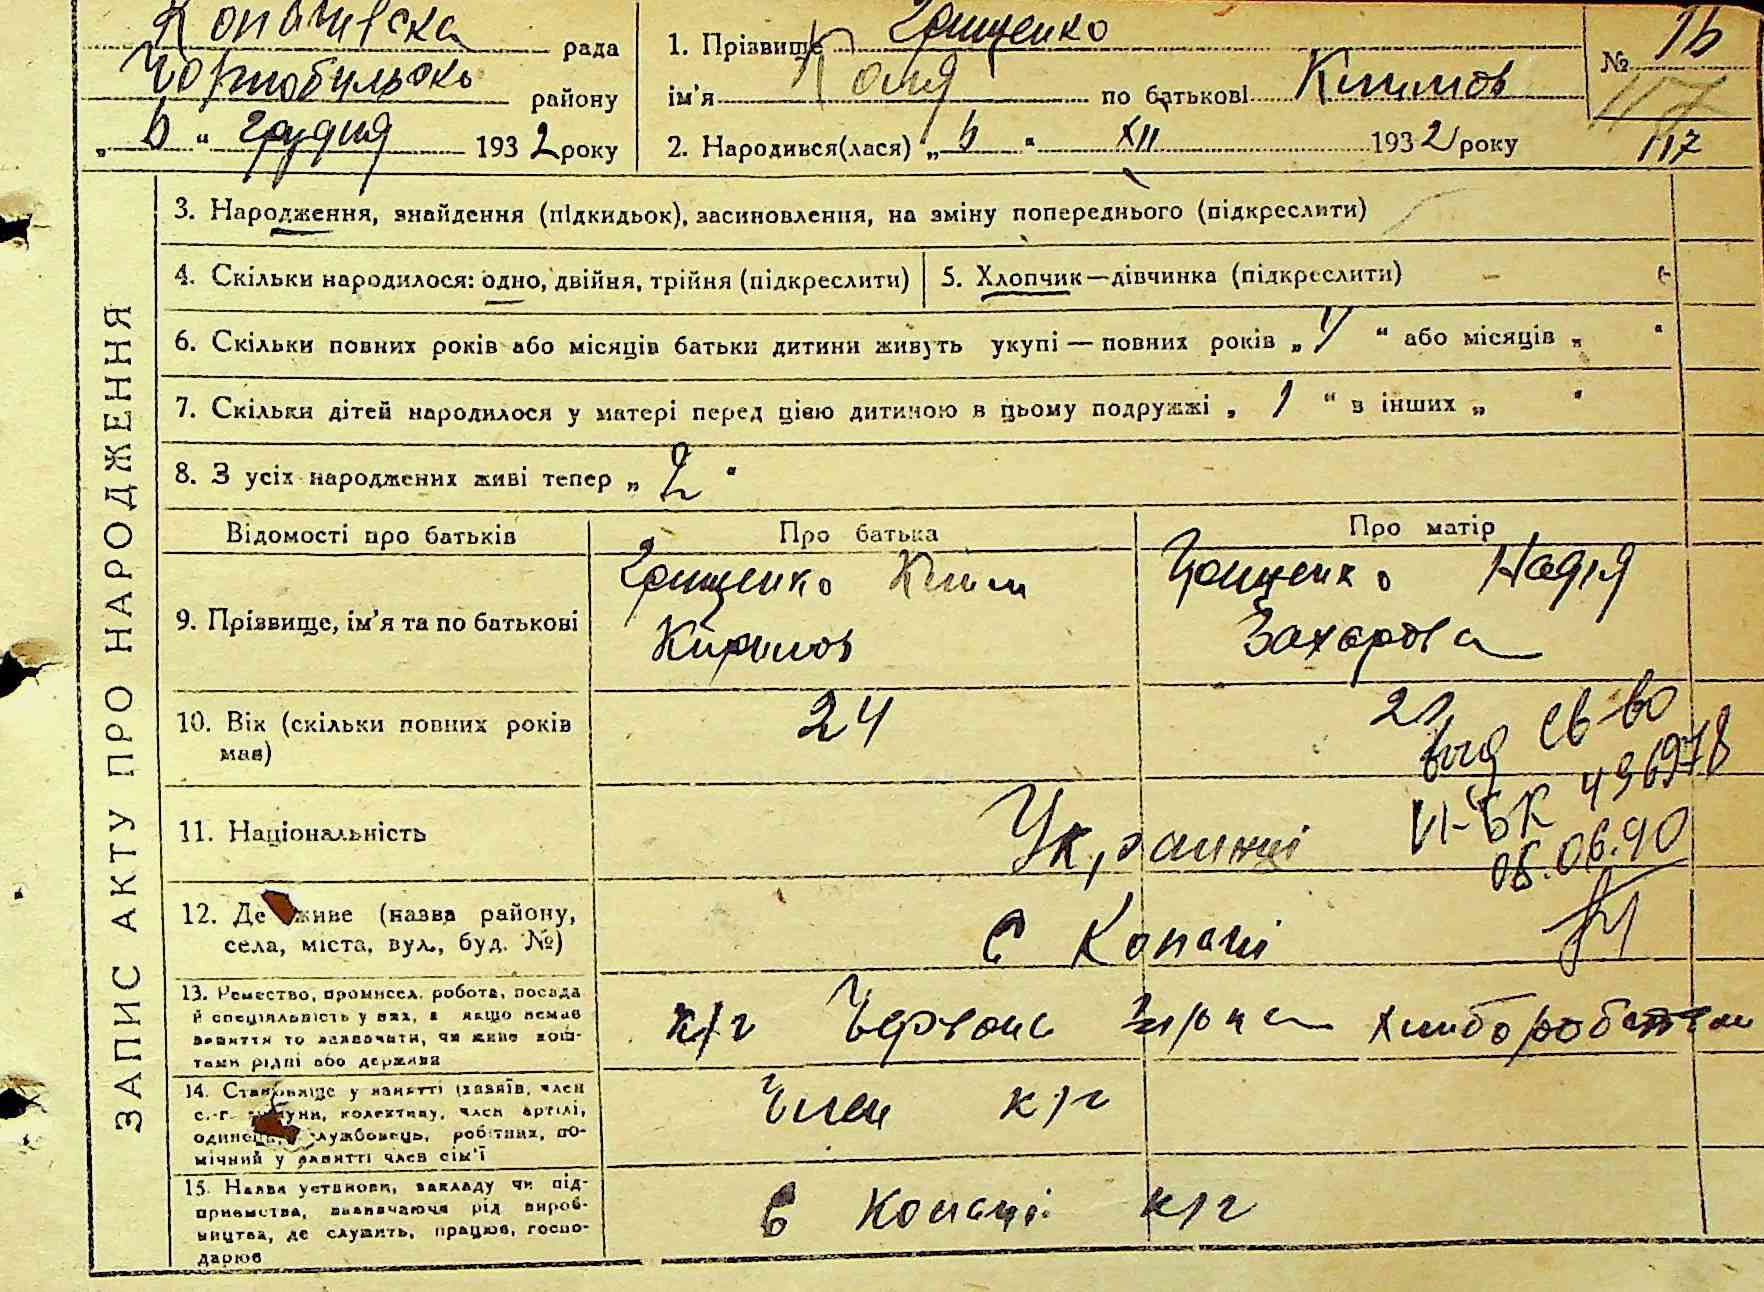 Копачівска рада
Чорнобильско району
„ 6 “ грудня 1932 року
1. Прізвище Грищенко
ім'я Коля по батькові Климов
2. Народився(лася) „ 6 “ XII 1932 року
№ 16
117
117
ЗАПИС АКТУ ПРО НАРОДЖЕННЯ
3. Народження, знайдення (підкидьок), засиновлення, на зміну попереднього (підкреслити)
4. Скільки народилося: одно, двійня, трійня (підкреслити)
5. Хлопчик—дівчинка (підкреслити)
6. Скільки повних років або місяців батьки дитини живуть укупі — повних років „ “ або місяців „ “
7. Скільки дітей народилося у матері перед цією дитиною в цьому подружжі „ 1 “ в інших „ “
8. З усіх народжених живі тепер „ 2 “
Відомості про батьків
Про батька
Про матір
9. Прізвище, ім'я та по батькові
Грищенко Клим
Кирилов
Грищенко Надія
Захарова
10. Вік (скільки повних років
мав)
24
выд св-во
VI-БК 436978
05.06.90
11. Національність
Українці
12. Де живе (назва району,
села, міста, вул., буд. №)
с Копачі
13. Ремество, промисел, робота, посада
й спеціяльність у них, а якщо немає
заняття то зазначати, чи живе кош-
тами рідні або держави
к/г Червона Зірка хлібороб
14. Становище у занятті (хазяїв, член
с.-г. комуни, колективу, член артілі,
одинець, службовець, робітник, по-
мічний у занятті член сім'ї
Член к/г
15. Назва установи, закладу чи під-
приємства, зазначаючи рід вироб-
ництва, де служить, працює, госпо-
дарює
с Копачі к/г